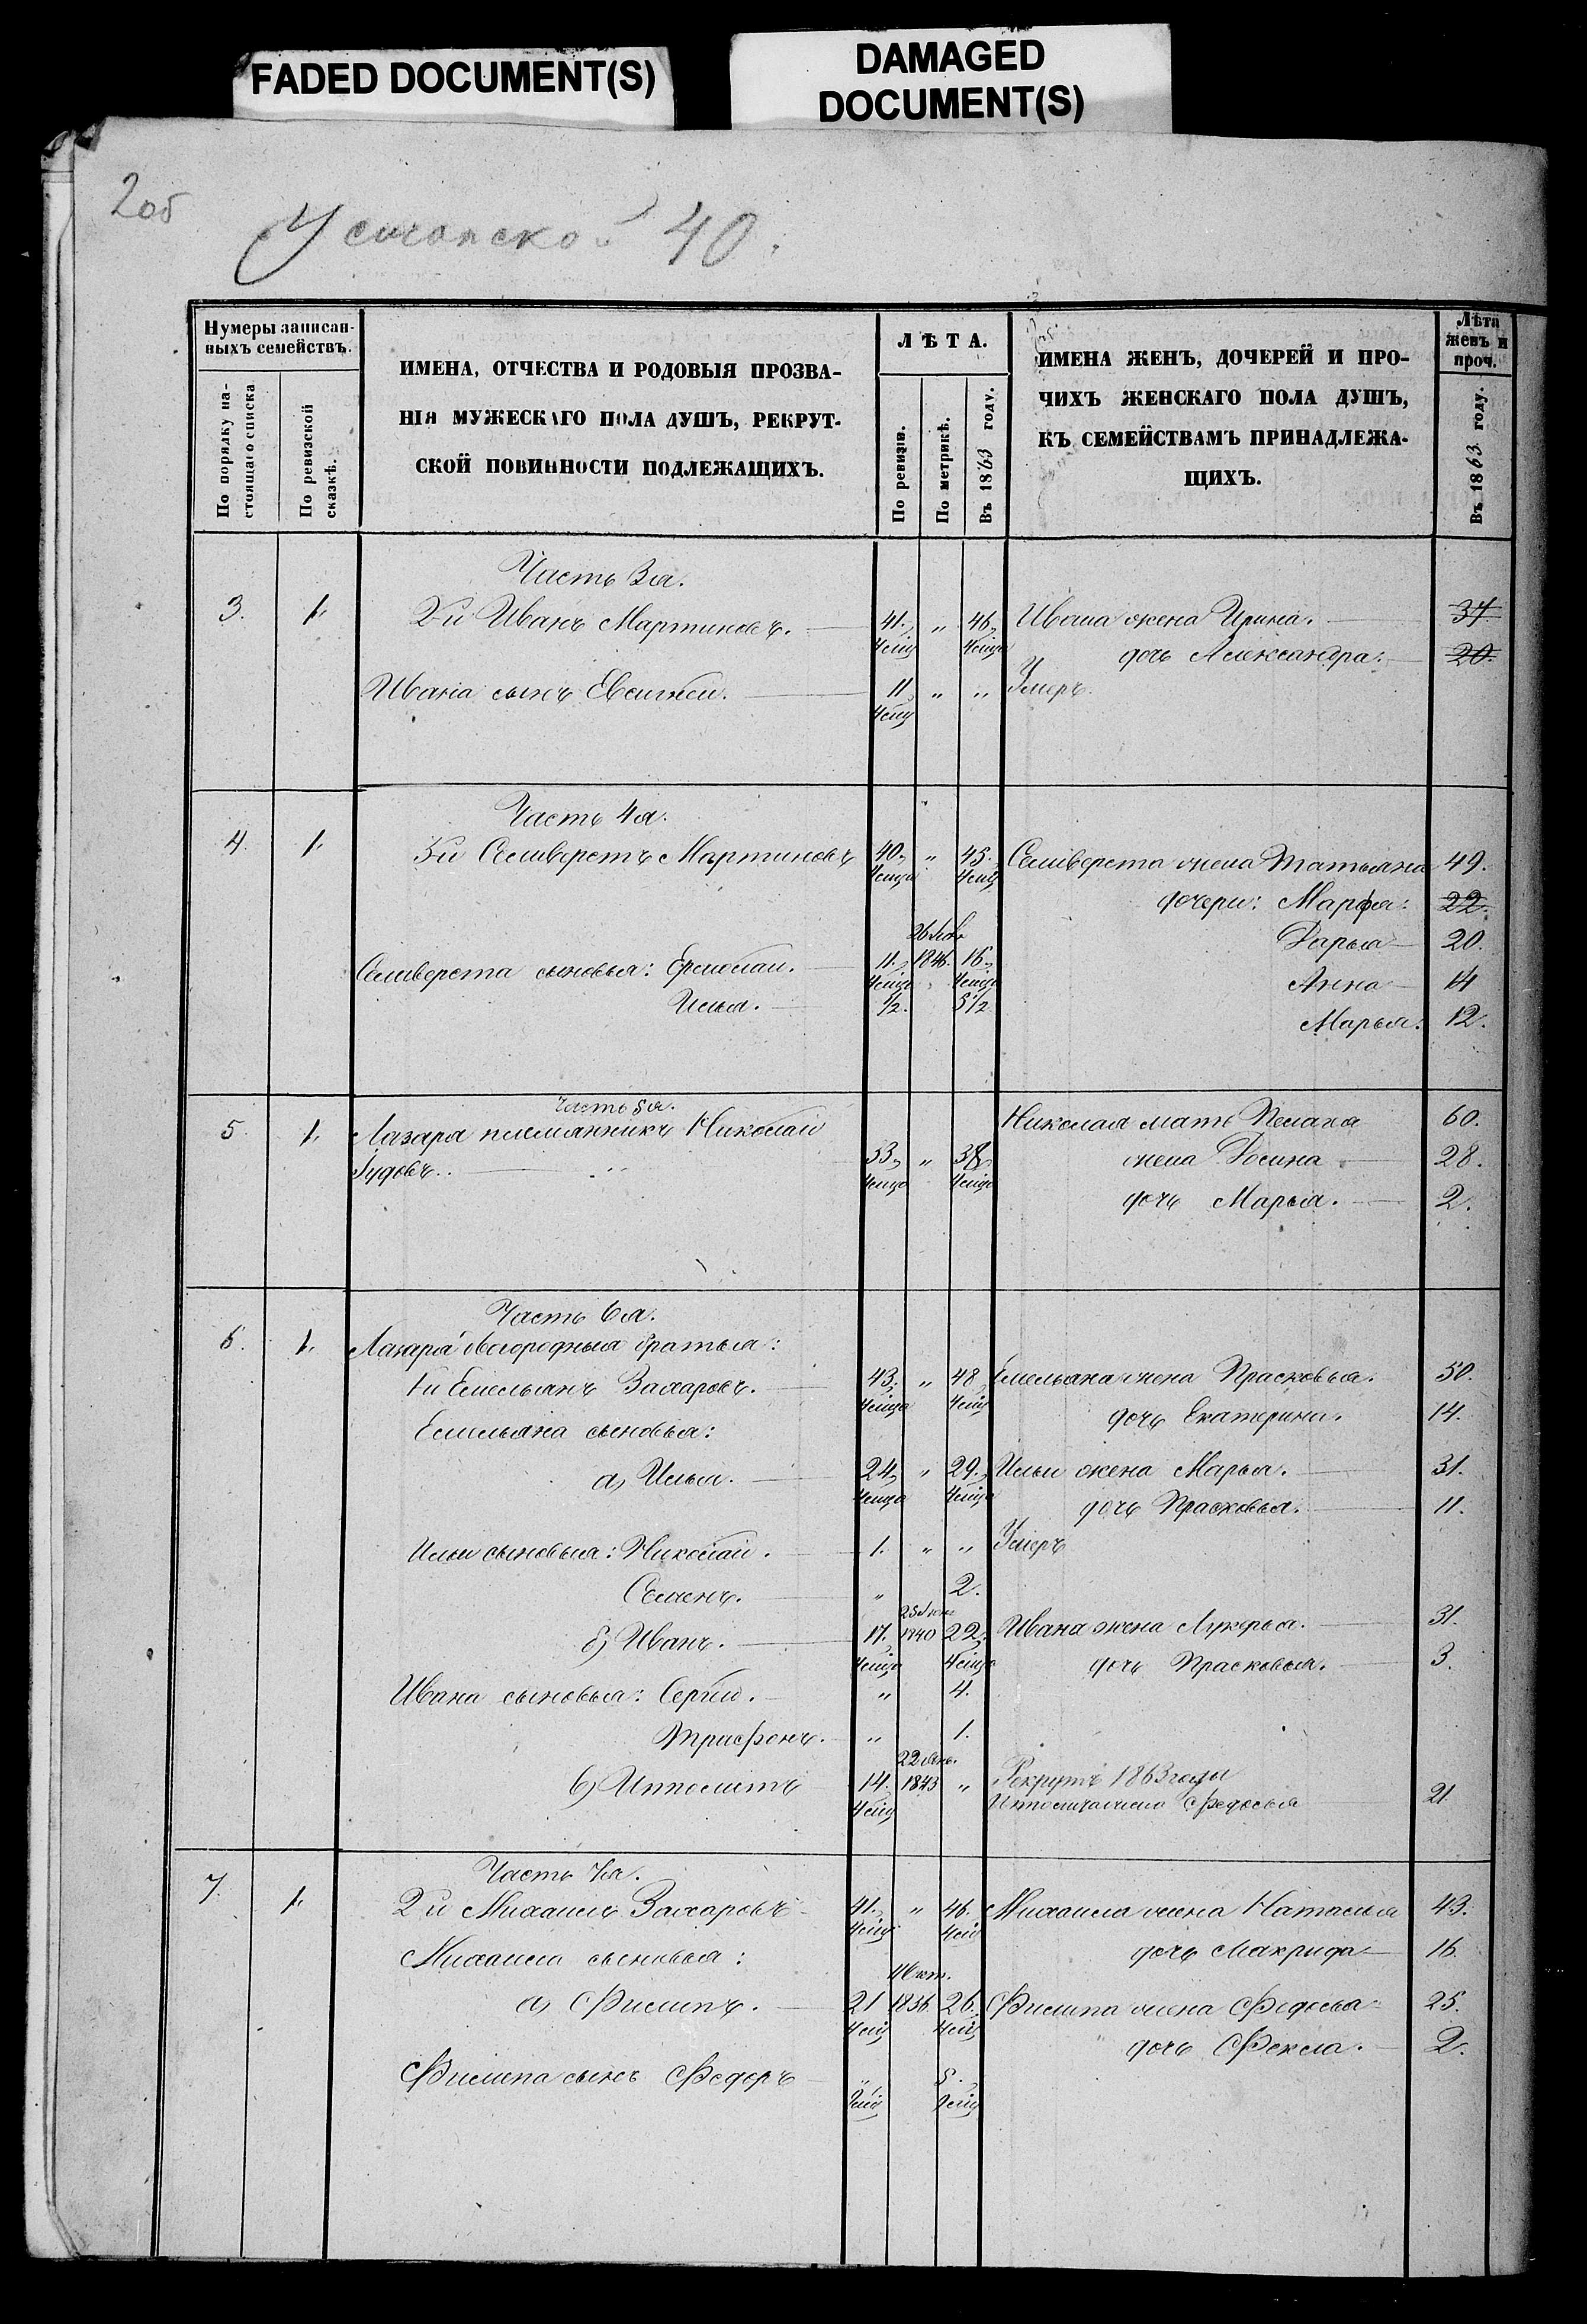 FADED DOCUMENT(S)
DAMAGED
DOCUMENT(S)
2об
40.
Нумеры записан-
ныхъ семействъ.
По порядку на-
стоящаго списка
По ревизской
сказкѣ.
ИМЕНА, ОТЧЕСТВА И РОДОВЫЯ ПРОЗВА-
НІЯ МУЖЕСКАГО ПОЛА ДУШЪ, РЕКРУТ-
СКОЙ ПОВИННОСТИ ПОДЛЕЖАЩИХЪ.
ЛѢТА.
По ревизіи.
По метрикѣ.
Въ 1863 году.
ИМЕНА ЖЕНЪ, ДОЧЕРЕЙ И ПРО-
ЧИХЪ ЖЕНСКАГО ПОЛА ДУШЪ,
КЪ СЕМЕЙСТВАМЪ ПРИНАДЛЕЖА-
ЩИХЪ.
Лѣта
женъ и
проч.
Въ 1863 году.
Часть 3я.
3. 1. 2й Иванъ Мартиновъ. 41. " 46. Ивана жена Ирина. 37
дочь Александра. 20.
Ивана сынъ Евсигней. 11 " " Умеръ.
Часть 4я.
4. 1. 3й Селиверстъ Мартиновъ 40. " 45. Селиверста жена Татьяна 49.
дочери: Марфа: 22.
Дарья 20.
Селиверста сыновья: Ермолай. 11. 1846. 16. Анна 14
Илья. ½. 5½ Марья. 12.
Часть 5я.
5. 1. Лазаря племянникъ Николай Николая мать Пелагея 60.
Гудовъ. 33. " 38. жена Досина 28.
дочь Марья. 2.
Часть 6я.
6. 1. Лазаря двоюродныя братья:
1й Емельянъ Захаровъ. 43. " 48 Емельяна жена Прасковья. 50.
Емельяна сыновья: дочь Екатерина. 14.
а) Илья. 24. " 29. Ильи жена Марья. 31.
дочь Прасковья. 11.
Ильи сыновья: Николай. 1. " " Умеръ
Семенъ. " 2.
б) Иванъ. 17. 1840 22. Ивана жена Лукерья. 31.
дочь Прасковья. 3.
Ивана сыновья: Сергѣй. " 4.
Трифонъ. " 1.
в) Ипполитъ 14. 1843 " Рекрутъ 1863 года
Ипполита жена Федосья 21
Часть 7я.
7. 1. 2й Михаилъ Захаровъ 41. " 46. Михаила жена Наталья 43.
Михаила сыновья: дочь Макрида 16
а) Филипъ. 21 1836 26. Филипа жена Федосья 25.
дочь Фекла. 2.
Филипа сынъ Федоръ " 5.